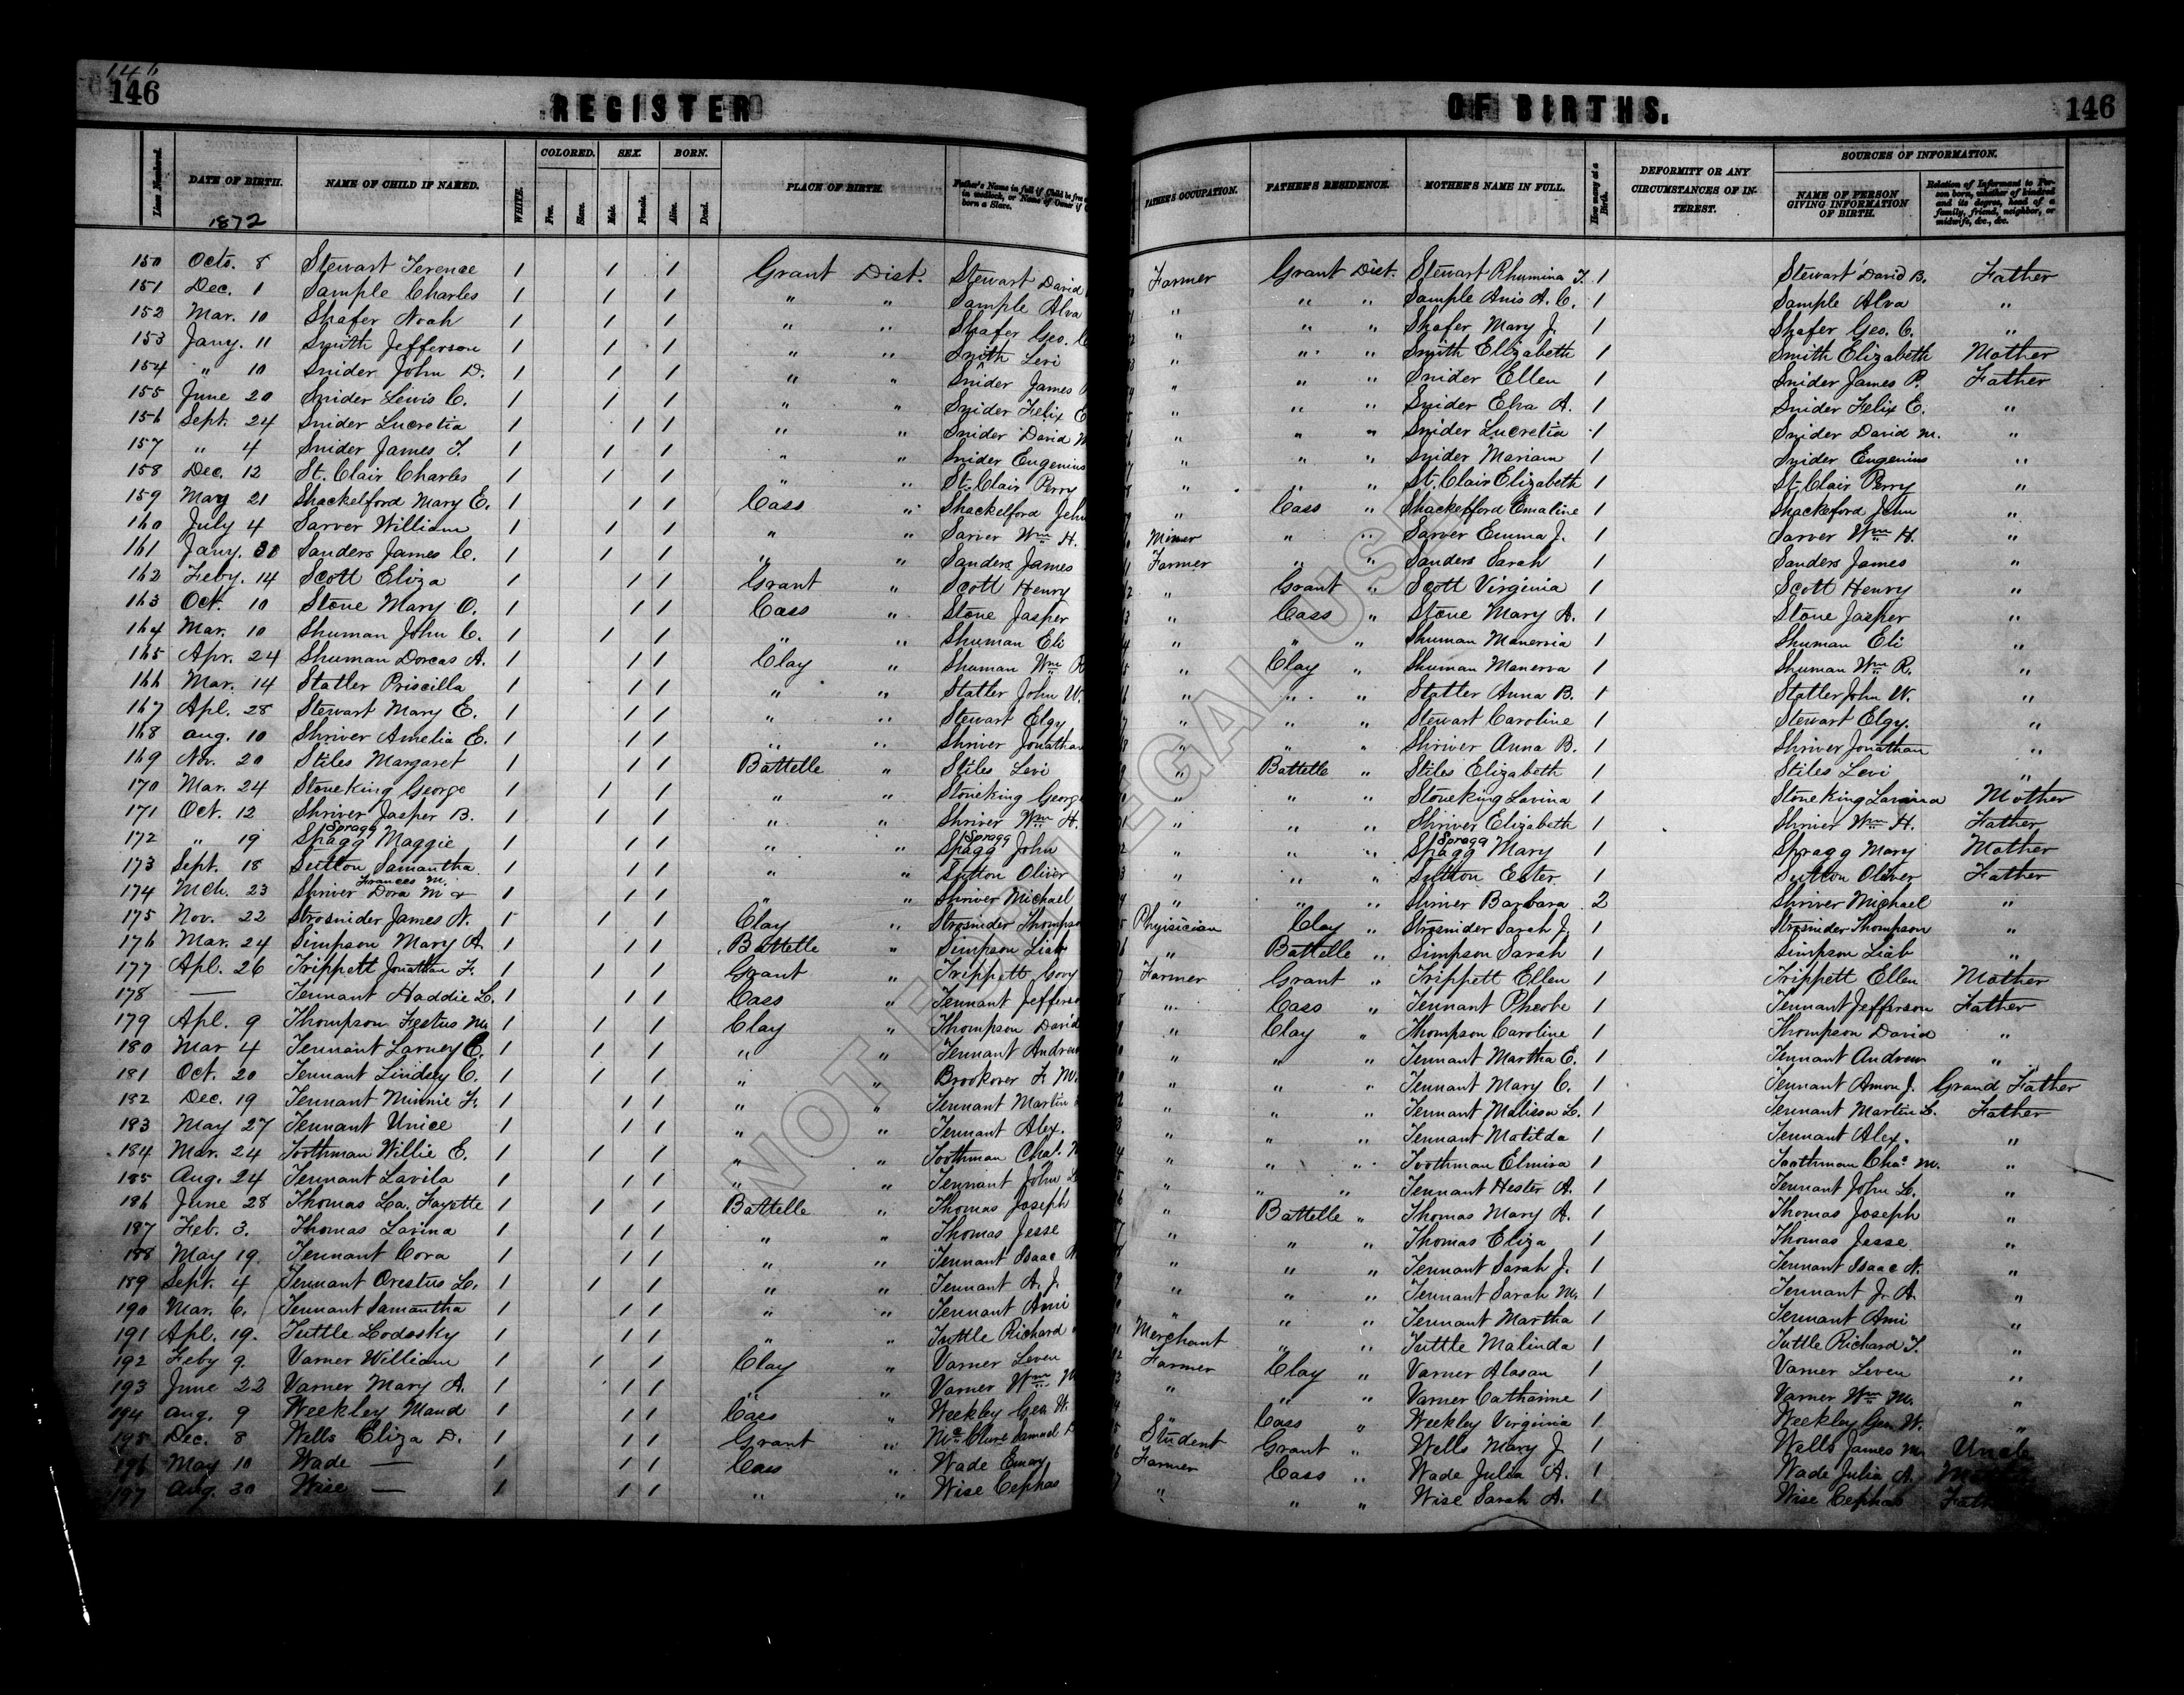 146
146 REGISTER OF BIRTHS. 146
Lines Numbered. DATE OF BIRTH. NAME OF CHILD IF NAMED. WHITE. COLORED. Free. Slave. SEX. Male. Female. BORN. Alive. Dead. PLACE OF BIRTH. Father's Name in full if Child be free in wedlock, or Name of Owner if born a Slave. FATHER'S OCCUPATION. FATHER'S RESIDENCE. MOTHER'S NAME IN FULL. How many at a Birth. DEFORMITY OR ANY CIRCUMSTANCES OF INTEREST. SOURCES OF INFORMATION. NAME OF PERSON GIVING INFORMATION OF BIRTH. Relation of Informant to Person born, whether of kindred and its degree, head of a family, friend, neighbor, or midwife, &c., &c.
1872
150 Octo. 8 Stewart Terence 1 1 1 Grant Dist. Stewart David Farmer Grant Dist. Stewart Rhumina T. 1 Stewart David B. Father
151 Dec. 1 Sample Charles 1 1 1 " " Sample Alva " " " Sample Anis A. C. 1 Sample Alva "
152 Mar. 10 Shafer Noah 1 1 1 " " Shafer Geo. C " " " Shafer Mary J. 1 Shafer Geo. C. "
153 Jany. 11 Smith Jefferson 1 1 1 " " Smith Levi " " " Smith Elizabeth 1 Smith Elizabeth Mother
154 " 10 Snider John D. 1 1 1 " " Snider James P " " " Snider Ellen 1 Snider James P. Father
155 June 20 Snider Lewis C. 1 1 1 " " Snider Felix E " " " Snider Elva A. 1 Snider Felix E. "
156 Sept. 24 Snider Lucretia 1 1 1 " " Snider David M " " " Snider Lucretia 1 Snider David M. "
157 " 4 Snider James T. 1 1 1 " " Snider Eugenius " " " Snider Mariam 1 Snider Eugenius "
158 Dec. 12 St. Clair Charles 1 1 1 " " St. Clair Perry " " " St. Clair Elizabeth 1 St. Clair Perry "
159 May 21 Shackelford Mary E. 1 1 1 Cass " Shackelford John " Cass " Shackelford Emaline 1 Shackeford John "
160 July 4 Sarver William 1 1 1 " " Sarver Wm H. Miner " " Sarver Emma J. 1 Sarver Wm H. "
161 Jany. 30 Sanders James C. 1 1 1 " " Sanders James Farmer " " Sanders Sarah 1 Sanders James "
162 Feby. 14 Scott Eliza 1 1 1 Grant " Scott Henry " Grant " Scott Virginia 1 Scott Henry "
163 Oct. 10 Stone Mary O. 1 1 1 Cass " Stone Jasper " Cass " Stone Mary A. 1 Stone Jasper "
164 Mar. 10 Shuman John C. 1 1 1 " " Shuman Eli " " " Shuman Manervia 1 Shuman Eli "
165 Apr. 24 Shuman Dorcas A. 1 1 1 Clay " Shuman Wm R " Clay " Shuman Manerva 1 Shuman Wm R. "
166 Mar. 14 Statler Priscilla 1 1 1 " " Statler John W. " " " Statler Anna B. 1 Statler John W. "
167 Apl. 28 Stewart Mary E. 1 1 1 " " Stewart Elgy " " " Stewart Caroline 1 Stewart Elgy. "
168 Aug. 10 Shriver Amelia E. 1 1 1 " " Shriver Jonathan " " " Shriver Anna B. 1 Shriver Jonathan "
169 Nov. 20 Stiles Margaret 1 1 1 Battelle " Stiles Levi " Battelle " Stiles Elizabeth 1 Stiles Levi "
170 Mar. 24 Stoneking George 1 1 1 " " Stoneking Georg " " " Stoneking Lavina 1 Stoneking Lavina Mother
171 Oct. 12 Shriver Jasper B. 1 1 1 " " Shriver Wm H. " " " Shriver Elizabeth 1 Shriver Wm H. Father
172 " 19 Spagg Spragg Maggie 1 1 1 " " Spagg Spragg John " " " Spagg Spragg Mary 1 Spragg Mary Mother
173 Sept. 18 Sutton Samantha 1 1 1 " " Sutton Oliver " " " Sutton Ester 1 Sutton Oliver Father
174 Mch. 23 Shriver Dora M & Frances M. 1 1 1 " " Shriver Michael " " " Shriver Barbara 2 Shriver Michael "
175 Nov. 22 Strosnider James N. 1 1 1 Clay " Strosnider Thompso Phyisician Clay " Strosnider Sarah J. 1 Strosnider Thompson "
176 Mar. 24 Simpson Mary A. 1 1 1 Battelle " Simpson Liab " Battelle " Simpson Sarah 1 Simpson Liab "
177 Apl. 26 Trippett Jonathan F. 1 1 1 Grant " Trippett Gory Farmer Grant " Trippett Ellen 1 Trippett Ellen Mother
178 — Tennant Haddie L. 1 1 1 Cass " Tennant Jefferso " Cass " Tennant Pheobe 1 Tennant Jefferson Father
179 Apl. 9 Thompson Festus M. 1 1 1 Clay " Thompson David " Clay " Thompson Caroline 1 Thompson David "
180 Mar 4 Tennant Larney C. 1 1 1 " " Tennant Andrew " " " Tennant Martha E. 1 Tennant Andrew "
181 Oct. 20 Tennant Lindsey C. 1 1 1 " " Brookover F. M. " " " Tennant Mary C. 1 Tennant Amon J. Grand Father
182 Dec. 19 Tennant Minnie F. 1 1 1 " " Tennant Martin " " " Tennant Melissa L. 1 Tennant Martin L. Father
183 May 27 Tennant Unice 1 1 1 " " Tennant Alex. " " " Tennant Matilda 1 Tennant Alex. "
184 Mar. 24 Toothman Willie E. 1 1 1 " " Toothman Chas. M " " " Toothman Elmira 1 Toothman Chas M. "
185 Aug. 24 Tennant Lavila 1 1 1 " " Tennant John L " " " Tennant Hester A. 1 Tennant John L. "
186 June 28 Thomas La. Fayette 1 1 1 Battelle " Thomas Joseph " Battelle " Thomas Mary A. 1 Thomas Joseph "
187 Feb. 3. Thomas Lavina 1 1 1 " " Thomas Jesse " " " Thomas Eliza 1 Thomas Jesse "
188 May 19. Tennant Cora 1 1 1 " " Tennant Isaac N " " " Tennant Sarah J. 1 Tennant Isaac N. "
189 Sept. 4 Tennant Orestus L. 1 1 1 " " Tennant A. J. " " " Tennant Sarah M. 1 Tennant J. A. "
190 Mar. 6. Tennant Samantha 1 1 1 " " Tennant Ami " " " Tennant Martha 1 Tennant Ami "
191 Apl. 19. Tuttle Lodosky 1 1 1 " " Tuttle Richard Merchant " " Tuttle Malinda 1 Tuttle Richard T. "
192 Feby 9. Varner William 1 1 1 Clay " Varner Leven Farmer Clay " Varner Alasan 1 Varner Leven "
193 June 22 Varner Mary A. 1 1 1 " " Varner Wm M " " " Varner Catharine 1 Varner Wm M. "
194 Aug. 9 Weekley Maud 1 1 1 Cass " Weekley Geo. W. " Cass " Weekley Virginia 1 Weekley Geo. W. "
195 Dec. 8 Wells Eliza D. 1 1 1 Grant " McClure Samuel Student Grant " Wells Mary J. 1 Wells James M. Uncle
196 May 10 Wade — 1 1 1 Cass " Wade Emory Farmer Cass " Wade Julia A. 1 Wade Julia A. Mother
197 Aug. 30 Wise — 1 1 1 " " Wise Cephas " " " Wise Sarah A. 1 Wise Cephas Father
NOT FOR LEGAL USE